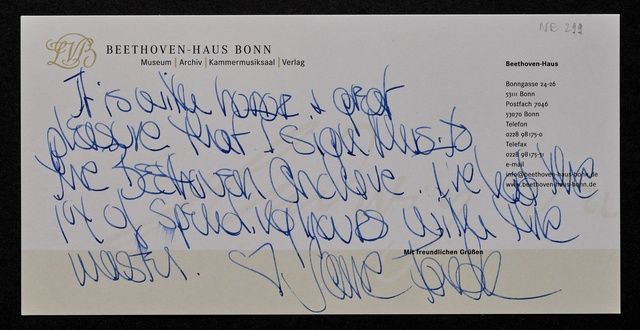 NE 299
LVB
BEETHOVEN-HAUS BONN
Museum | Archiv | Kammermusiksaal | Verlag
Beethoven-Haus
Bonngasse 24-26
53111 Bonn
Postfach 7046
53070 Bonn
Telefon
0228 98175-0
Telefax
0228 98175-31
e-mail
info@beethoven-haus-bonn.de
www.beethoven-haus-bonn.de
It is with honor & great
pleasure that I sign this to
the Beethoven Archive. I've had the
joy of spending hours with the
master. ♡ Jane Fonda
Mit freundlichen Grüßen